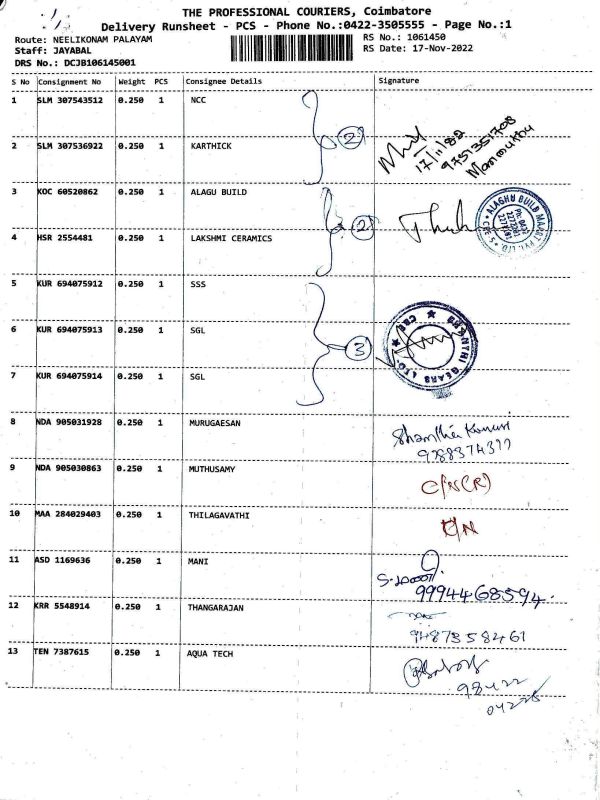 THE PROFESSIONAL COURIERS, Coimbatore
Delivery Runsheet - PCS - Phone No.:0422-3505555 - Page No.:1
Route: NEELIKONAM PALAYAM RS No.: 1061450
Staff: JAYABAL RS Date: 17-Nov-2022
DRS No.: DCJB106145001
S No Consignment No Weight PCS Consignee Details Signature
1 SLM 307543512 0.250 1 NCC
2
17/11/22
9751351708
2 SLM 307536922 0.250 1 KARTHICK
3 KOC 60520862 0.250 1 ALAGU BUILD
2
ALAGHU BUILD MAART PVT. LTD. CBE-5
4 HSR 2554481 0.250 1 LAKSHMI CERAMICS
5 KUR 694075912 0.250 1 SSS
6 KUR 694075913 0.250 1 SGL
3
SHANTHI GEARS LTD. CBE
7 KUR 694075914 0.250 1 SGL
8 NDA 905031928 0.250 1 MURUGAESAN
9 NDA 905030863 0.250 1 MUTHUSAMY
C/N(R)
10 MAA 284029403 0.250 1 THILAGAVATHI
C/N
11 ASD 1169636 0.250 1 MANI
9994468594
12 KRR 5548914 0.250 1 THANGARAJAN
9487358461
13 TEN 7387615 0.250 1 AQUA TECH
98422